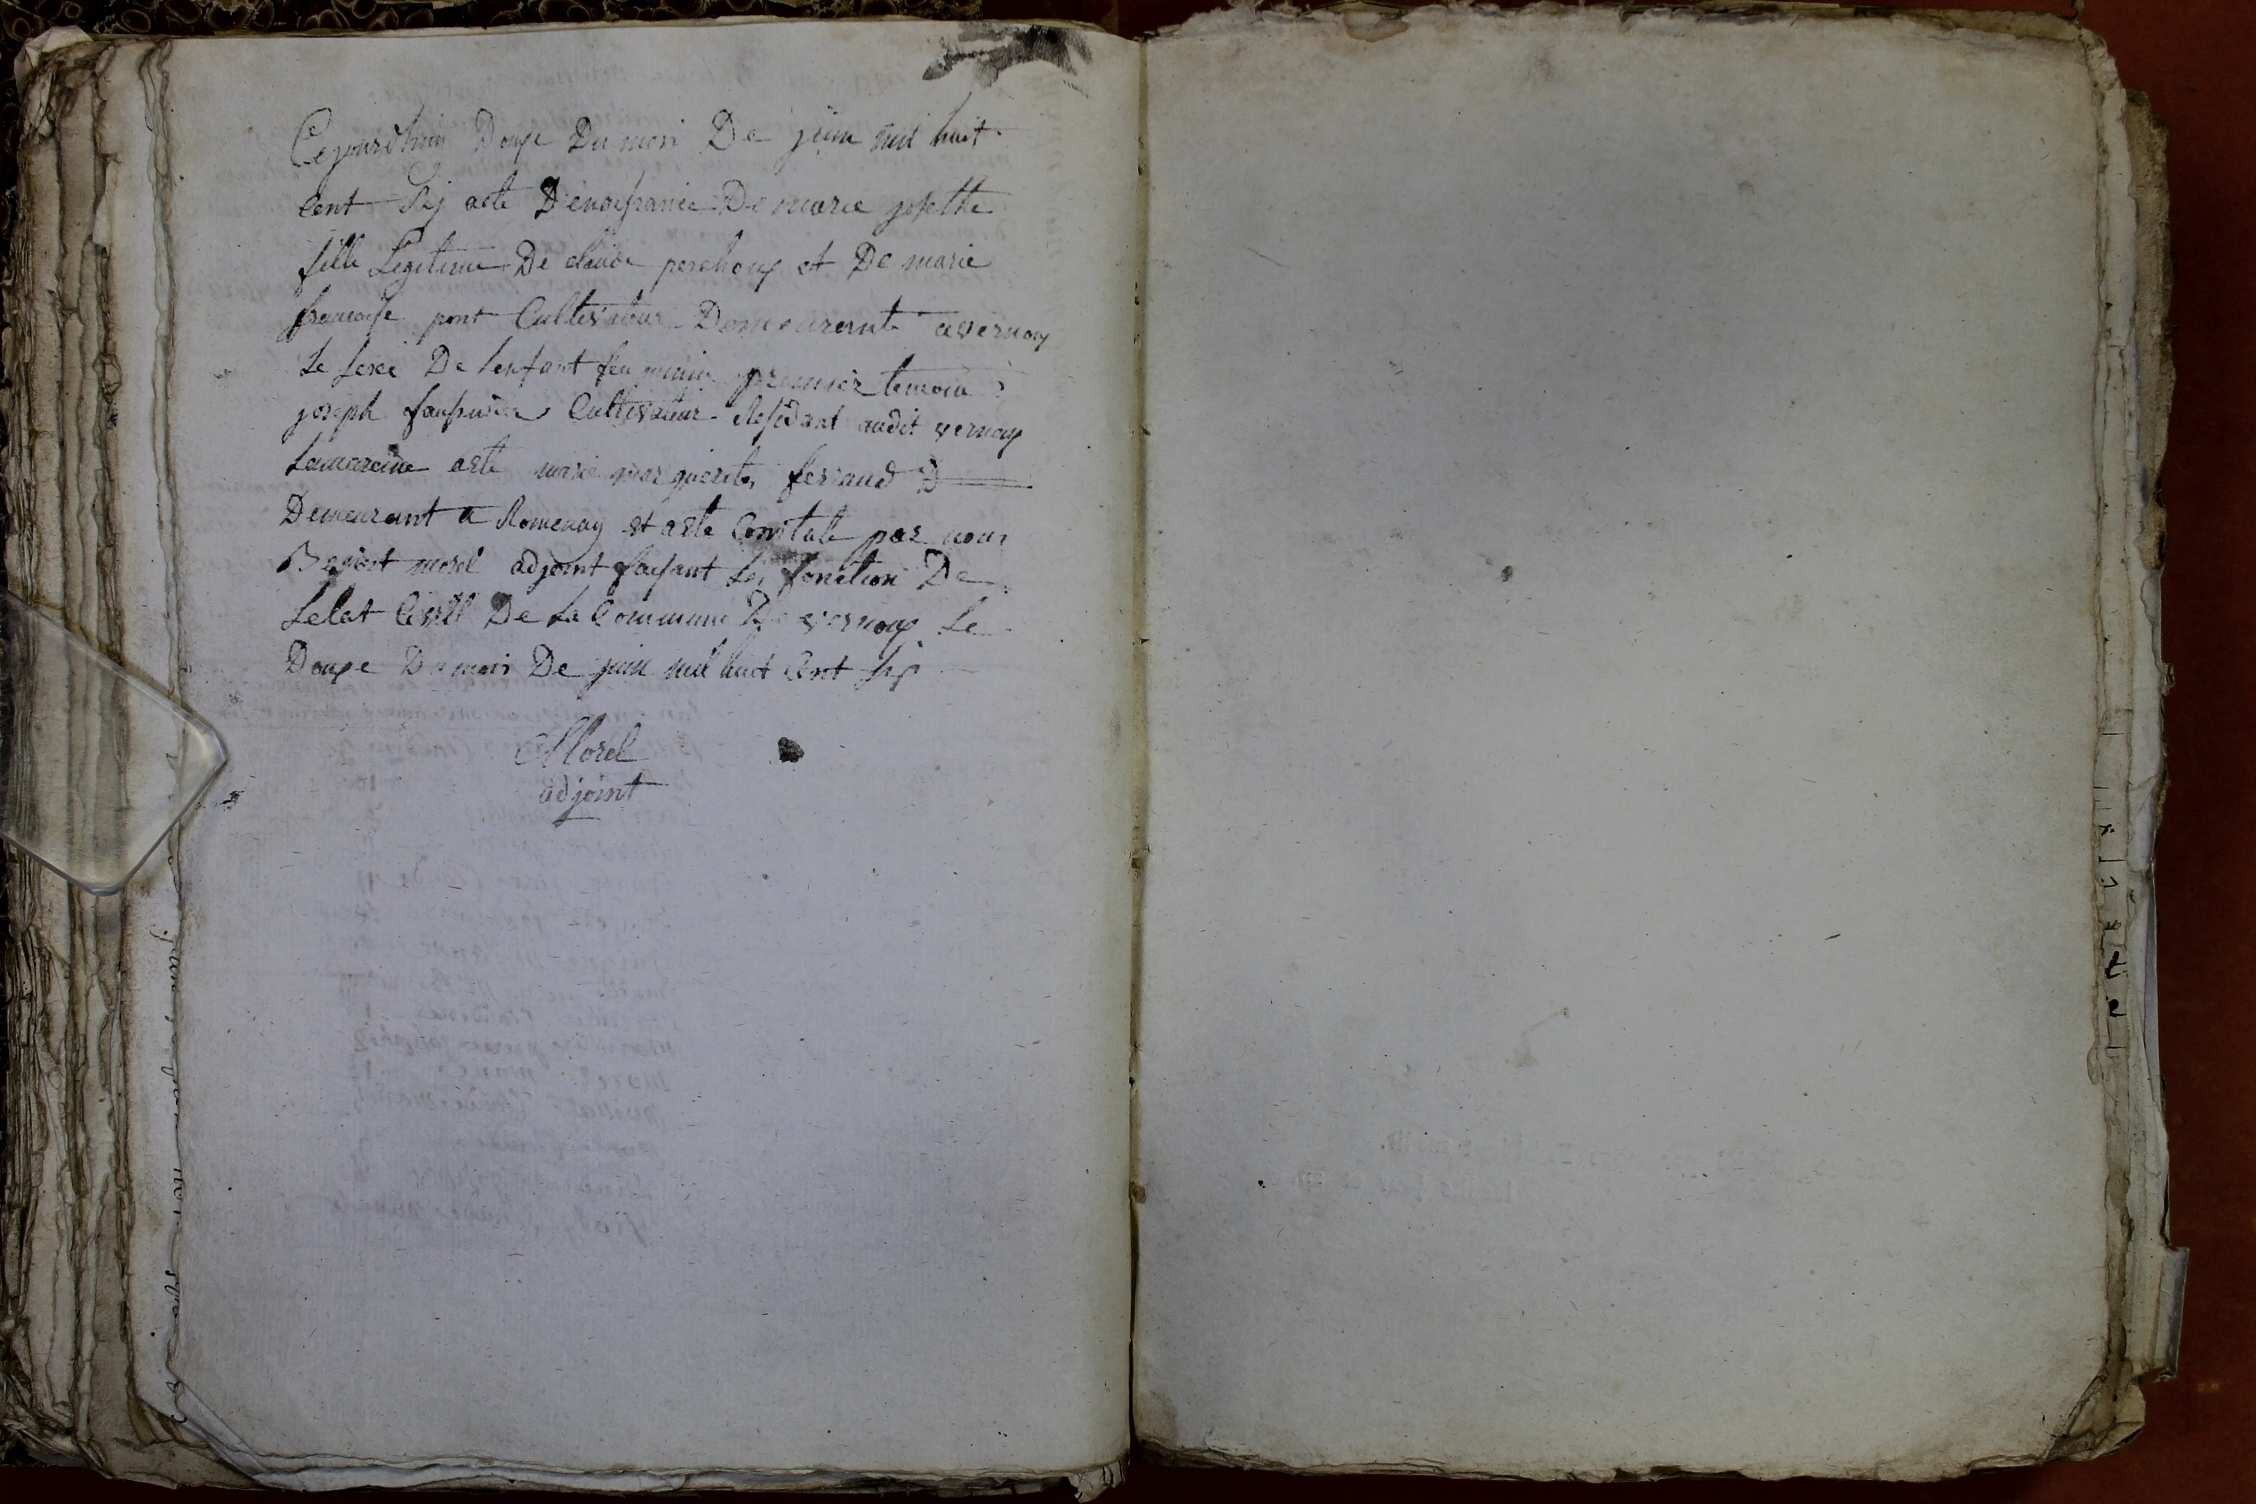 Cejourdhuis Douze Du mois De juin mil huit
Cent Six acte Denaissance De marie josette
fille Legitime De claude perchoux et De marie
francoise pont Cultivateur Demeurant avernoux
Le sexe De lenfant feminin premier temoin
joseph Cultivateur Residant audit vernoux
Lamareine aete marie marguerite ferraud D
Demeurant a Romenay et aete Constate par nous
Benoist morel adjoint faisant les fonction De
Letat Civil De La Commune De vernoux Le
Douze Du mois De juin mil huit Cent six
Morel
adjoint